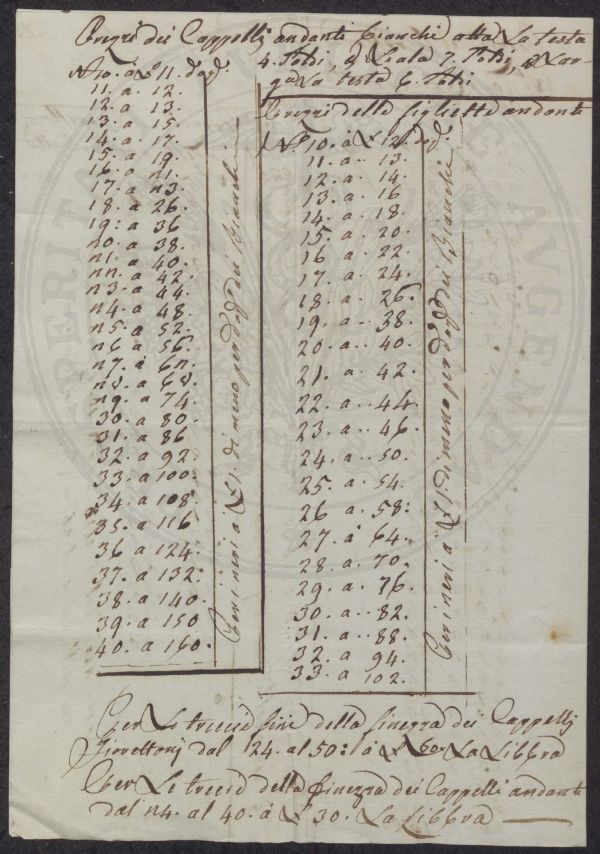 Prezzi dei Cappelli andanti Bianchi alta La testa
4. Soldi, e Leala 7. Soldi, e Lar-
ga La testa 6. Soldi
No 10. a £ 11. dozª:
11. a 12.
12. a 13.
13. a 15.
14. a 17.
15. a 19.
16. a n1.
17. a n3.
18. a 26.
19: a 36
n0. a 38.
n1. a 40.
nn. a 42.
n3. a 44.
n4. a 48.
n5. a 52.
n6 a 56.
n7. a 6n.
n8. a 68.
n9. a 74.
30. a 80.
31. a 86
32. a 92.
33. a 100:
34. a 108.
35. a 116
36 a 124.
37. a 132:
38. a 140.
39. a 150
40. a 160.
Per i neri a £ 1. di meno per dozª dei Bianchi
Prezzi delle figliette andanti
No 10. a £ 12. dozª.
11. a 13.
12. a 14.
13. a 16
14. a 18.
15. a 20.
16 a 22.
17. a 24.
18. a 26.
19. a 38.
20. a 40.
21. a 42.
22. a 44.
23. a 46.
24. a 50.
25. a 54.
26 a 58:
27. a 64.
28. a 70.
29. a 76.
30. a 82.
31. a 88.
32. a 94.
33. a 102.
Per i neri a £ 1. di meno per dozª dei Bianchi
Per Le treccie fini della finezza dei Cappelli
Fiorettoni dal 24. al 50: a £ 60. La Libbra
Per Le treccie della finezza dei Cappelli andanti
dal n4. al 40. a £ 30. La Libbra